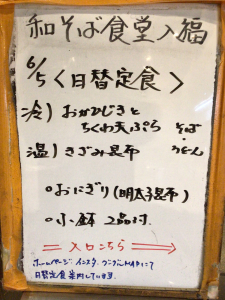 和そば食堂入福
6/5〈日替定食〉
冷）おかひじきと
ちくわ天ぷら そば
・
温）きざみ昆布 うどん
○おにぎり（明太子昆布）
○小鉢 2品付
＝入口こちら→
ホームページ インスタ グーグルMAPにて
日替定食案内しています